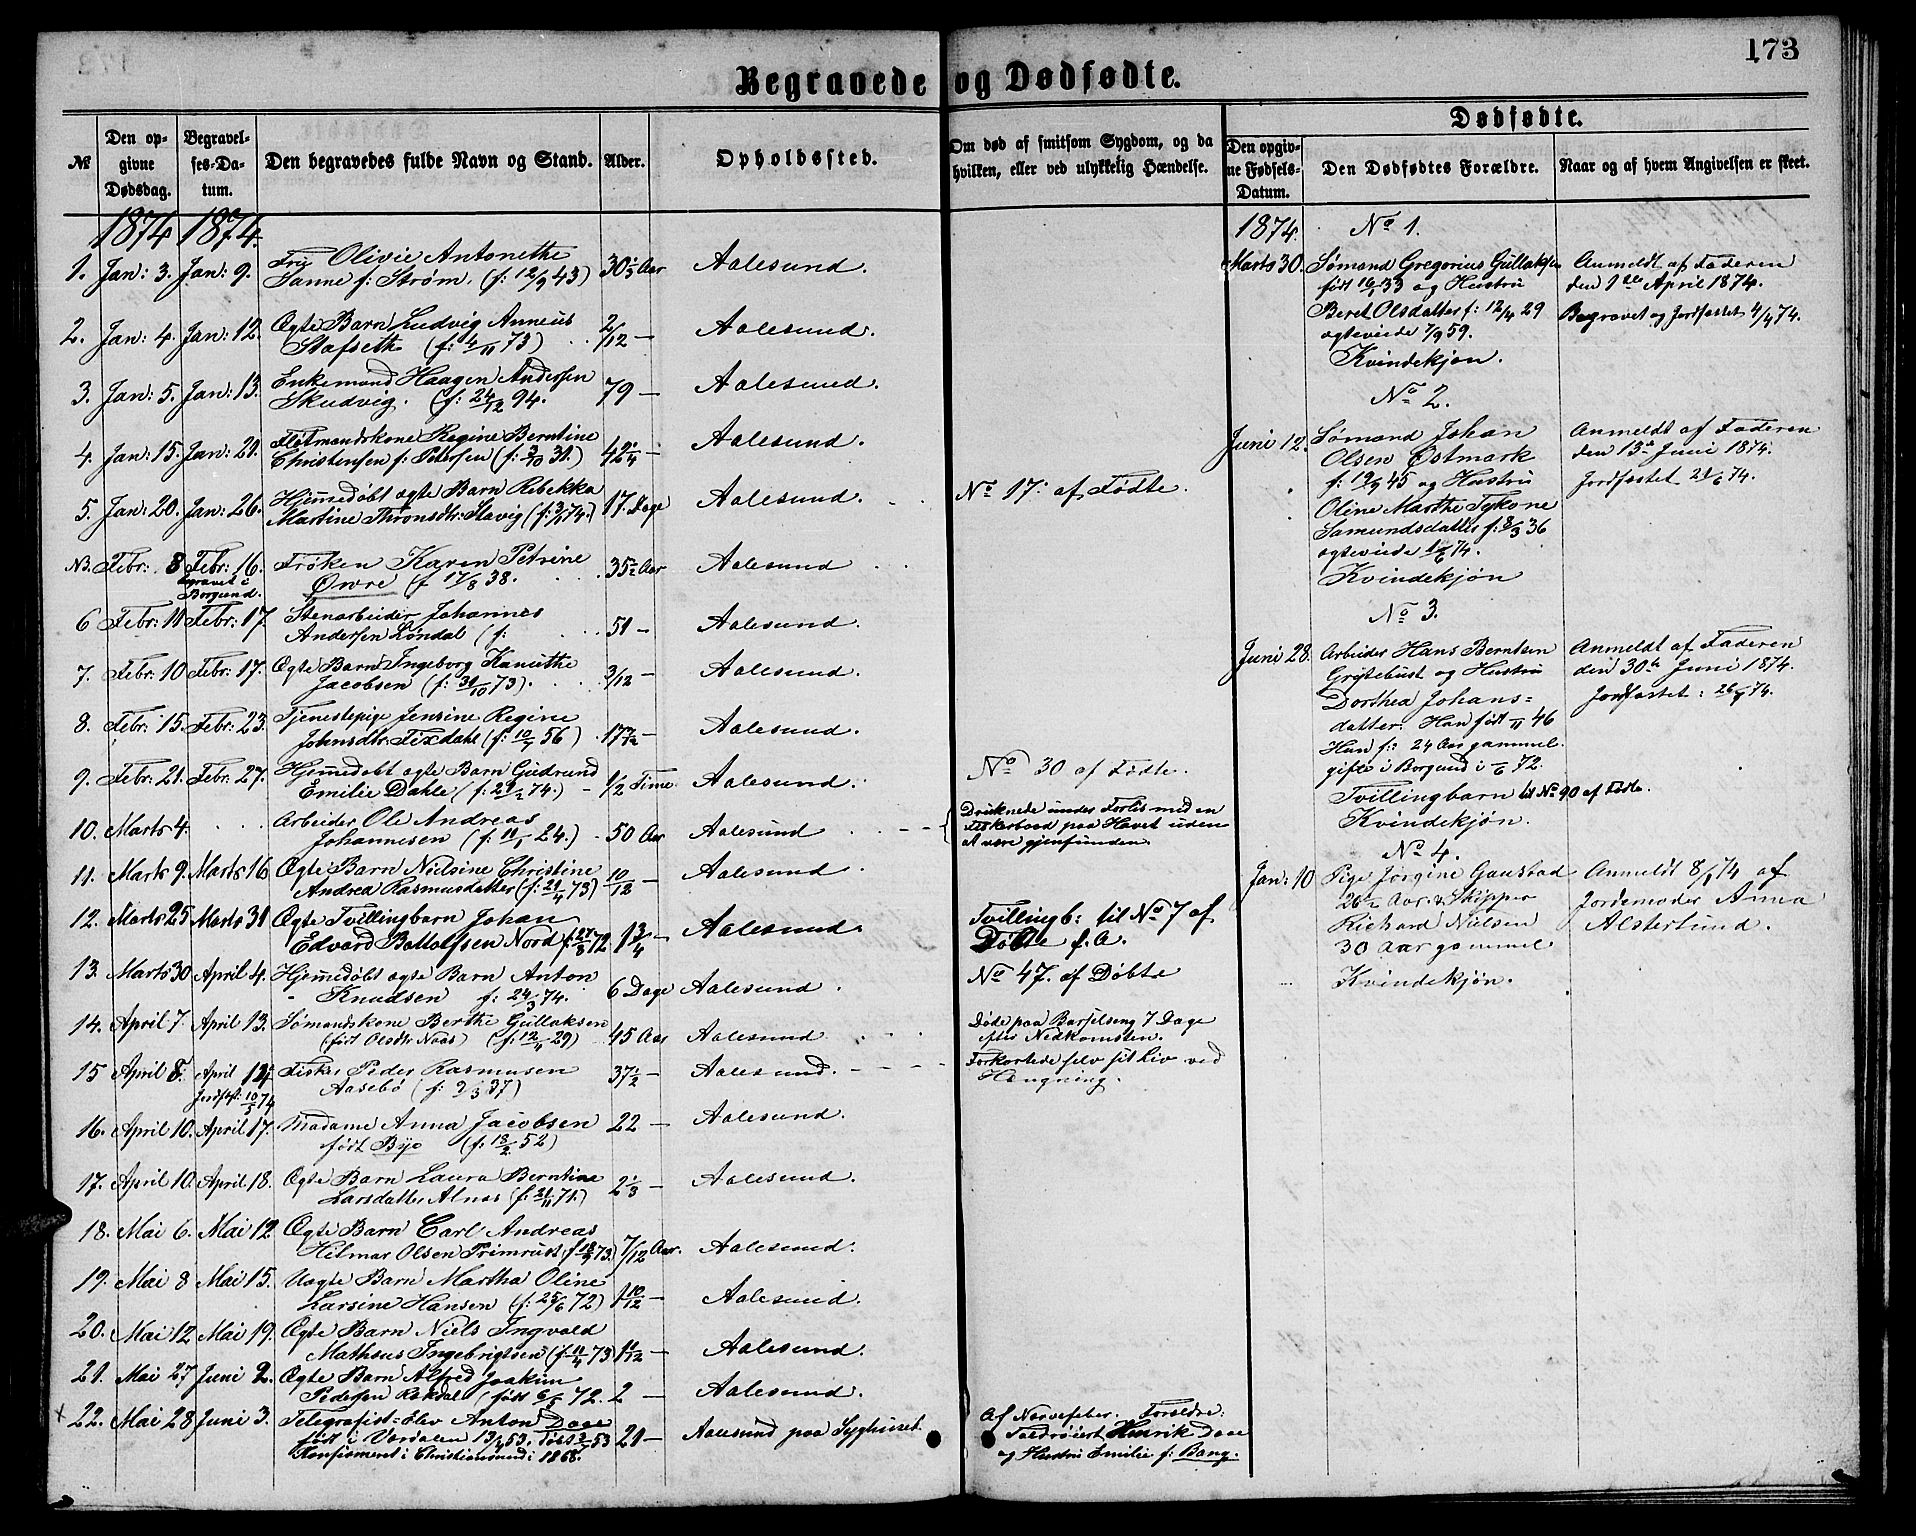 173
Begravede og Dødfødte.
№
Den opgivne Dødsdag.
Begravelses-Datum.
Den begravedes fulde Navn og Stand.
Alder.
Opholdssted.
Om død af smitsom Sygdom, og da hvilken, eller ved ulykkelig Hændelse.
1874 1874.
1. Jan: 3. Jan: 9. Fru Olivie Antonethe 30 Aar Aalesund.
Sanne f: Strøm. (f: 12/9 43)
2. Jan: 4. Jan: 12. Ægte Barn Ludvig Anneus 2/12 — Aalesund.
Stafseth (f: 4/11 73)
3. Jan: 5. Jan: 13. Enkemand Haagen Andersen 79 — Aalesund.
Skudvig. (f: 24/12 94.
4. Jan: 15. Jan: 21. Flotmandskone Regine Berntine 42 1/4 — Aalesund.
Christensen f: Petersen (f: 3/10 31.)
5. Jan: 20. Jan: 26. Hjemmedøbt ægte Barn Rebekka 17. Dage Aalesund. No 17. af Fødte.
Martine Thronsdtr: Slavig (f: 3/1 74.)
NB. Febr: 8 Febr: 16. Frøken Karen Petrine 35 1/2 Aar Aalesund
begravet i Borgund.
Øvre (f 17/8 38.
6 Febr: 11 Febr: 17. Stenarbeider Johannes 51 — Aalesund.
Andersen Løndal (f:
7. Febr: 10 Febr: 17. Ægte Barn Ingeborg Kanuthe 3/12 — Aalesund.
Jacobsen (f: 31/10 73).
8. Febr: 15. Febr: 23. Tjenestepige Jensine Regine 17 7/12 — Aalesund.
Johnsdtr: Fixdahl (f: 10/7 56)
9. Febr: 21. Febr: 27. Hjemmedøbt ægte Barn Gudrund 1/2 Time Aalesund. No 30 af Fødte.
Emilie Dahle (f: 21/2 74.)
10. Marts 4. Arbeider Ole Andreas 50 Aar Aalesund
Johannesen (f: 11/1 24.)
Druknede under Forlis med en
Fiskerbaad paa Havet uden
at være gjenfunden.
11. Marts 9. Marts 16 Ægte Barn Nielsine Christine 10/12 — Aalesund.
Andrea Rasmusdatter (f: 21/4 73)
12. Marts 25 Marts 31 Ægte Tvillingbarn Johan 1 3/4 — Aalesund. Tvillingb: til No 7 af
Edvard Bottolfsen Nord f: 27/8 72. Døbte f. A.
13. Marts 30 April 4. Hjemmedøbt ægte Barn Anton 6 Dage Aalesund. No 47. af Døbte
Knudsen f: 24/3 74.
14. April 7. April 13. Sømandskone Berthe Gullaksen 45 Aar Aalesund.
(født Olsdtr Naas) (f: 12/4 29)
Døde paa Barselseng 7 Dage
efter Nedkomsten.
15 April 8. April 14 Fisker Peder Rasmusen 37 1/2 — Aalesund.
Jordfæst: 10/5 74
Aasebø (f: 2/3 37)
Forkortede selv sit Liv ved
Hængning.
16. April 10. April 17. Madame Anna Jacobsen 22 — Aalesund.
født Bye (f: 13/2 52)
17. April 10. April 18. Ægte Barn Laura Berntine 2 1/3 — Aalesund.
Larsdatter Alnæs (f: 21/11 71.)
18. Mai 6. Mai 12 Ægte Barn Carl Andreas 7/12 Aar. Aalesund.
Hilmar Olsen Frimrust
19. Mai 8 Mai 15. Uægte Barn Martha Oline 1 10/12 — Aalesund.
Larsine Hansen (f: 25/6 72)
20. Mai 12 Mai 19. Ægte Barn Niels Ingvald 1 1/12 — Aalesund.
Matheus Ingebrigtsen (f: 11/4 73)
21. Mai 27 Juni 2. Ægte Barn Alfred Joakim 2 — Aalesund.
Pedersen Rekdal (født 6/5 72.
x 22. Mai 28 Juni 3. Telegrafist-Elev Anton Daae 21 — Aalesund paa Sygehuset.
født i Værdalen 13/4 53.
Konfirmeret i Christiansund: 1868.
Af Nervefeber. Forældre:
Toldroiert Henrik Daae
og Hustru Emilie f: Bang.
Dødfødte.
Den opgivne Fødsels-Datum.
Den Dødfødtes Forældre.
Naar og af hvem Angivelsen er skeet.
1874. No 1.
Marts 30. Sømand Gregorius Gullaksen Anmeldt af Faderen
født 16/1 33 og Hustru den 1ste April 1874.
Beret Olsdatter f: 12/4 29 Begravet og Jordfæstet 4/4 74.
ægteviede 7/9 59.
Kvindekjøn.
No 2.
Juni 12. Sømand Johan Anmeldt af Faderen
Olsen Østmark den 13de Juni 1874.
f: 19/9 45 og Hustru Jordfæstet 21/6 74.
Oline Marthe Tykone
Samundsdatter f: 8/3 36
ægteviede 1/6 74.
Kvindekjøn
No 3.
Juni 28. Arbeider Hans Berntsen Anmeldt af Faderen
Grytebust og Hustru den 30te Juni 1874.
Dorthea Johans- Jordfæstet: 26/7 74.
datter: Han født 11 46
Hun f: 24 Aar gammel.
gifte i Borgund i 6 72.
Tvillingbarn til No 90 af Fødte.
Kvindekjøn.
No 4.
Jan: 10 Pige Jørgine Gaustad Anmeldt 8/1 74 af
26 Aar & Skipper Jordemoder Anna
Richard Nielsen Alsterlund.
30 Aar gammel
Kvindekjøn.